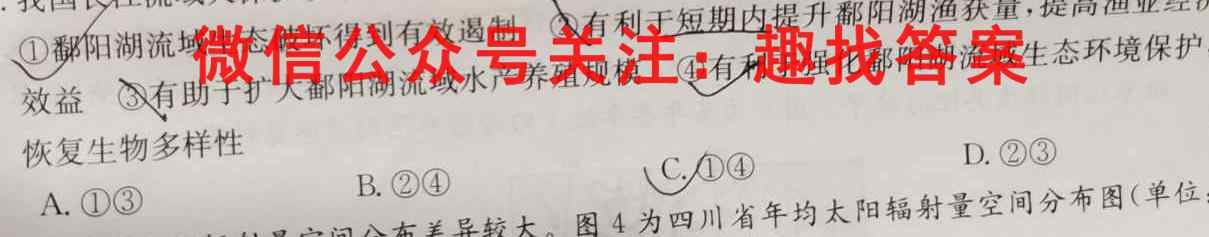 ①鄱阳湖流域生态破坏得到有效遏制 ②有利于短期内提升鄱阳湖渔获量,提高渔业经济
微信公众号关注:趣找答案
效益 ③有助于扩大鄱阳湖流域水产养殖规模 ④有利于强化鄱阳湖流域生态环境保护
恢复生物多样性
A. ①③ B. ②④ C. ①④ D. ②③
分布差异较大。图 4 为四川省年均太阳辐射量空间分布图(单位: